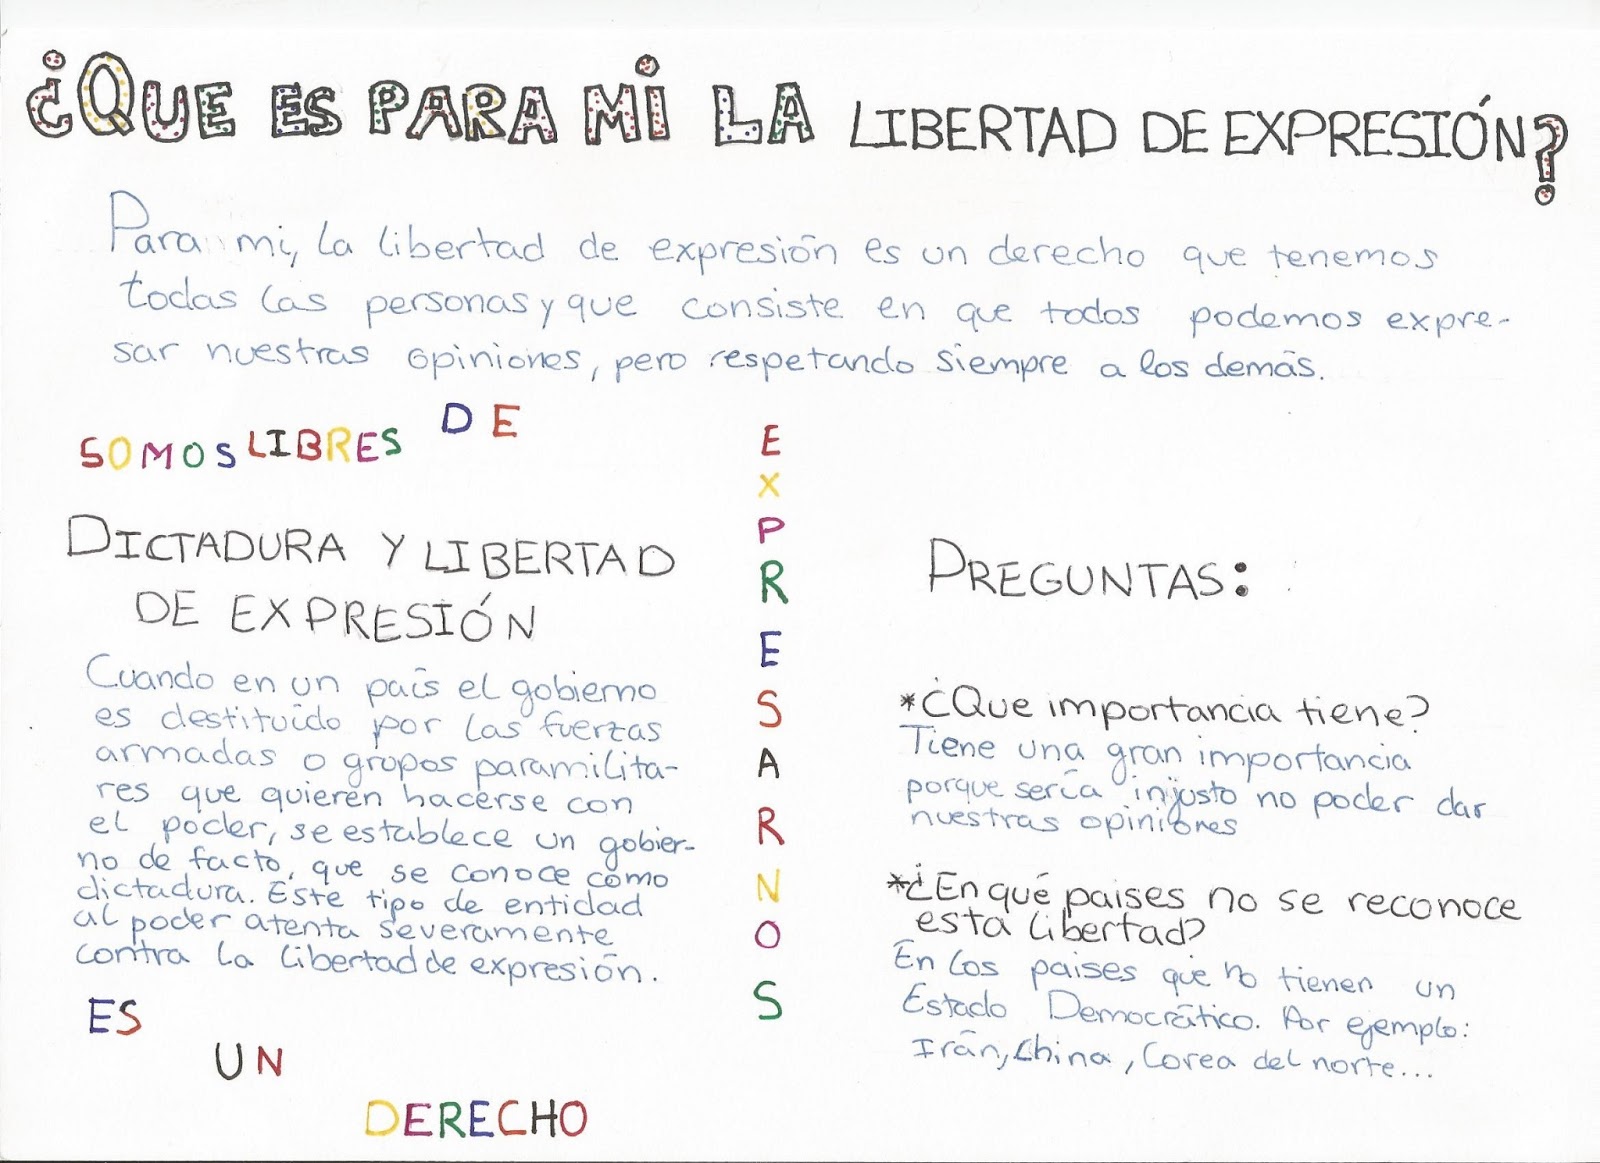 ¿QUE ES PARA Mi LA LIBERTAD DE EXPRESIÓN?
Para mi, la libertad de expresión es un derecho que tenemos
todas las personas y que consiste en que todos podemos expre-
sar nuestras opiniones, pero respetando siempre a los demás.
SOMOS LIBRES DE
EXPRESARNOS
DICTADURA Y LIBERTAD
DE EXPRESIÓN
Cuando en un país el gobierno
es destituído por las fuerzas
armadas o grupos paramilita-
res que quieren hacerse con
el poder, se establece un gobier-
no de facto, que se conoce como
dictadura. Este tipo de entidad
al poder atenta severamente
contra la libertad de expresión.
ES
UN
DERECHO
PREGUNTAS:
*¿Que importancia tiene?
Tiene una gran importancia
porque sería injusto no poder dar
nuestras opiniones
*¿En qué paises no se reconoce
esta libertad?
En los paises que no tienen un
Estado Democrático. Por ejemplo:
Irán, China, Corea del norte...